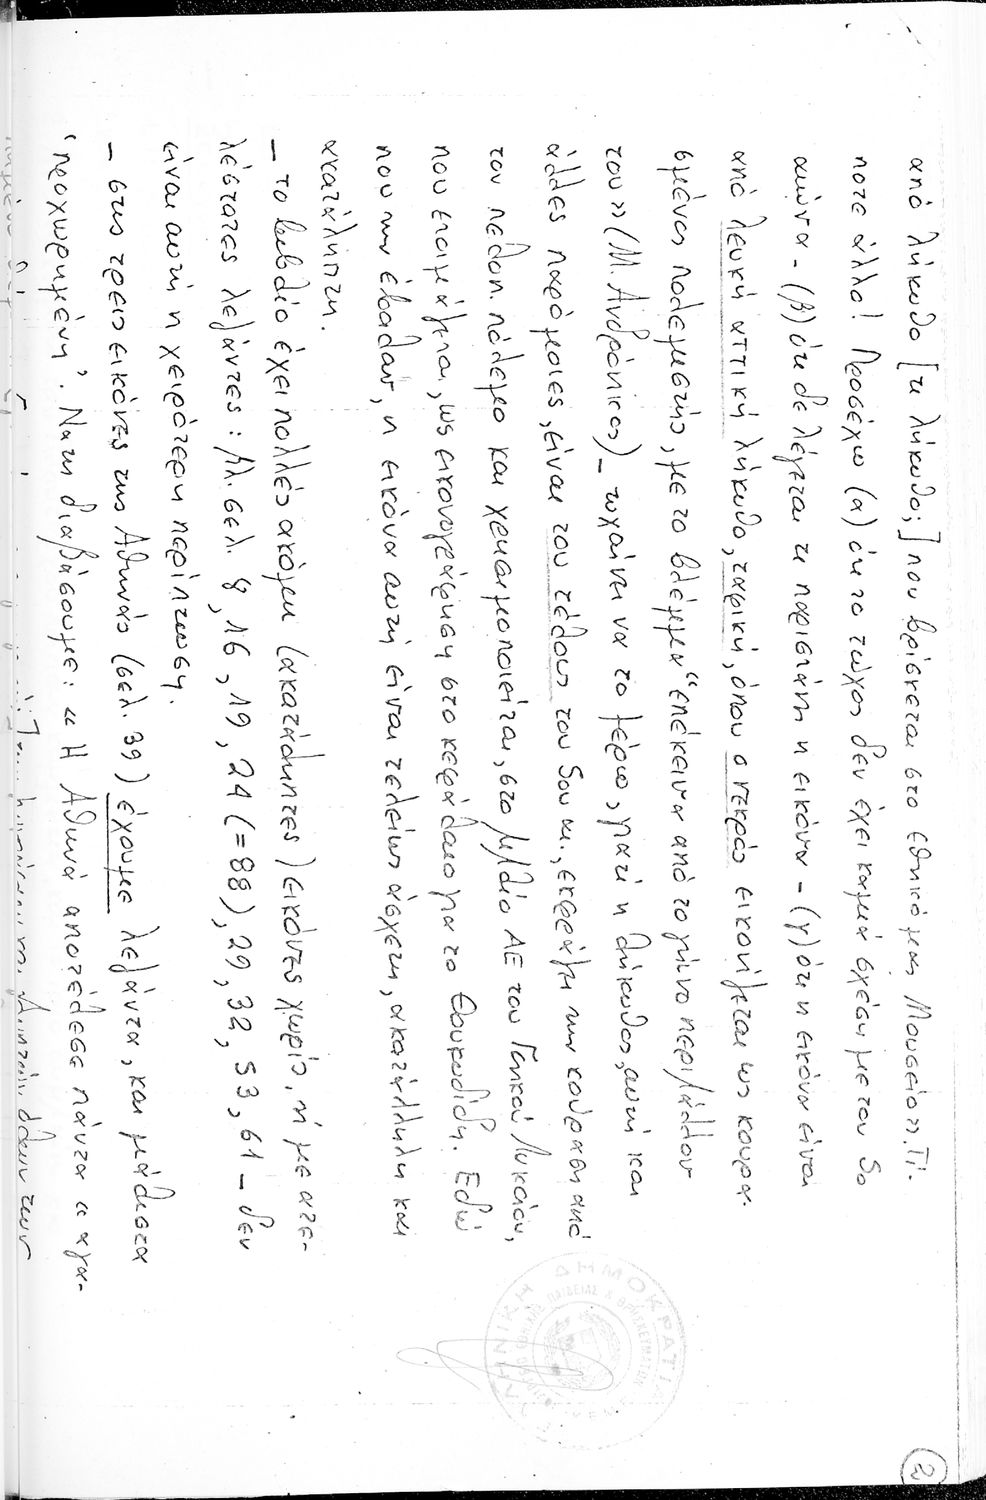 από λήκυθο [τι λήκυθο;] που βρίσκεται στο Εθνικό μας Μουσείο». Τί-
ποτε άλλο! Προσέχω (α) ότι το τεύχος δεν έχει καμμιά σχέση με τον 5ο
αιώνα - (β) ότι δε λέγεται τι παριστάνει η εικόνα - (γ) ότι η εικόνα είναι
από λευκή αττική λήκυθο, ταφική, όπου ο νεκρός εικονίζεται ως κουρα-
σμένος πολεμιστής, με το βλέμμα “επέκεινα από το γήινο περιβάλλον
του» (Μ. Ανδρόνικος) - τυχαίνει να το ξέρω, γιατί η λήκυθος, αυτή και
άλλες παρόμοιες, είναι του τέλους του 5ου αι., εκφράζει την κούραση από
τον πελοπ. πόλεμο και χρησιμοποιείται, στο βιβλίο ΑΕ του Γενικού Λυκείου,
που ετοιμάζεται, ως εικονογράφηση στο κεφάλαιο για το Θουκυδίδη. Εδώ
που την έβαλαν, η εικόνα αυτή είναι τελείως άσχετη, ακατάλληλη και
ακατάληπτη.
- το βιβλίο έχει πολλές ακόμη (ακατάληπτες) εικόνες χωρίς, ή με ατε-
λέστατες λεζάντες: βλ. σελ. 8, 16, 19, 24 (=88), 29, 32, 53, 61 - δεν
είναι αυτή η χειρότερη περίπτωση.
- στις τρεις εικόνες της Αθηνάς (σελ. 39) έχουμε λεζάντα, και μάλιστα
‘προχωρημένη’. Να τη διαβάσουμε: « Η Αθηνά αποτέλεσε πάντα « αγα-
ΕΛΛΗΝΙΚΗ ΔΗΜΟΚΡΑΤΙΑ
2